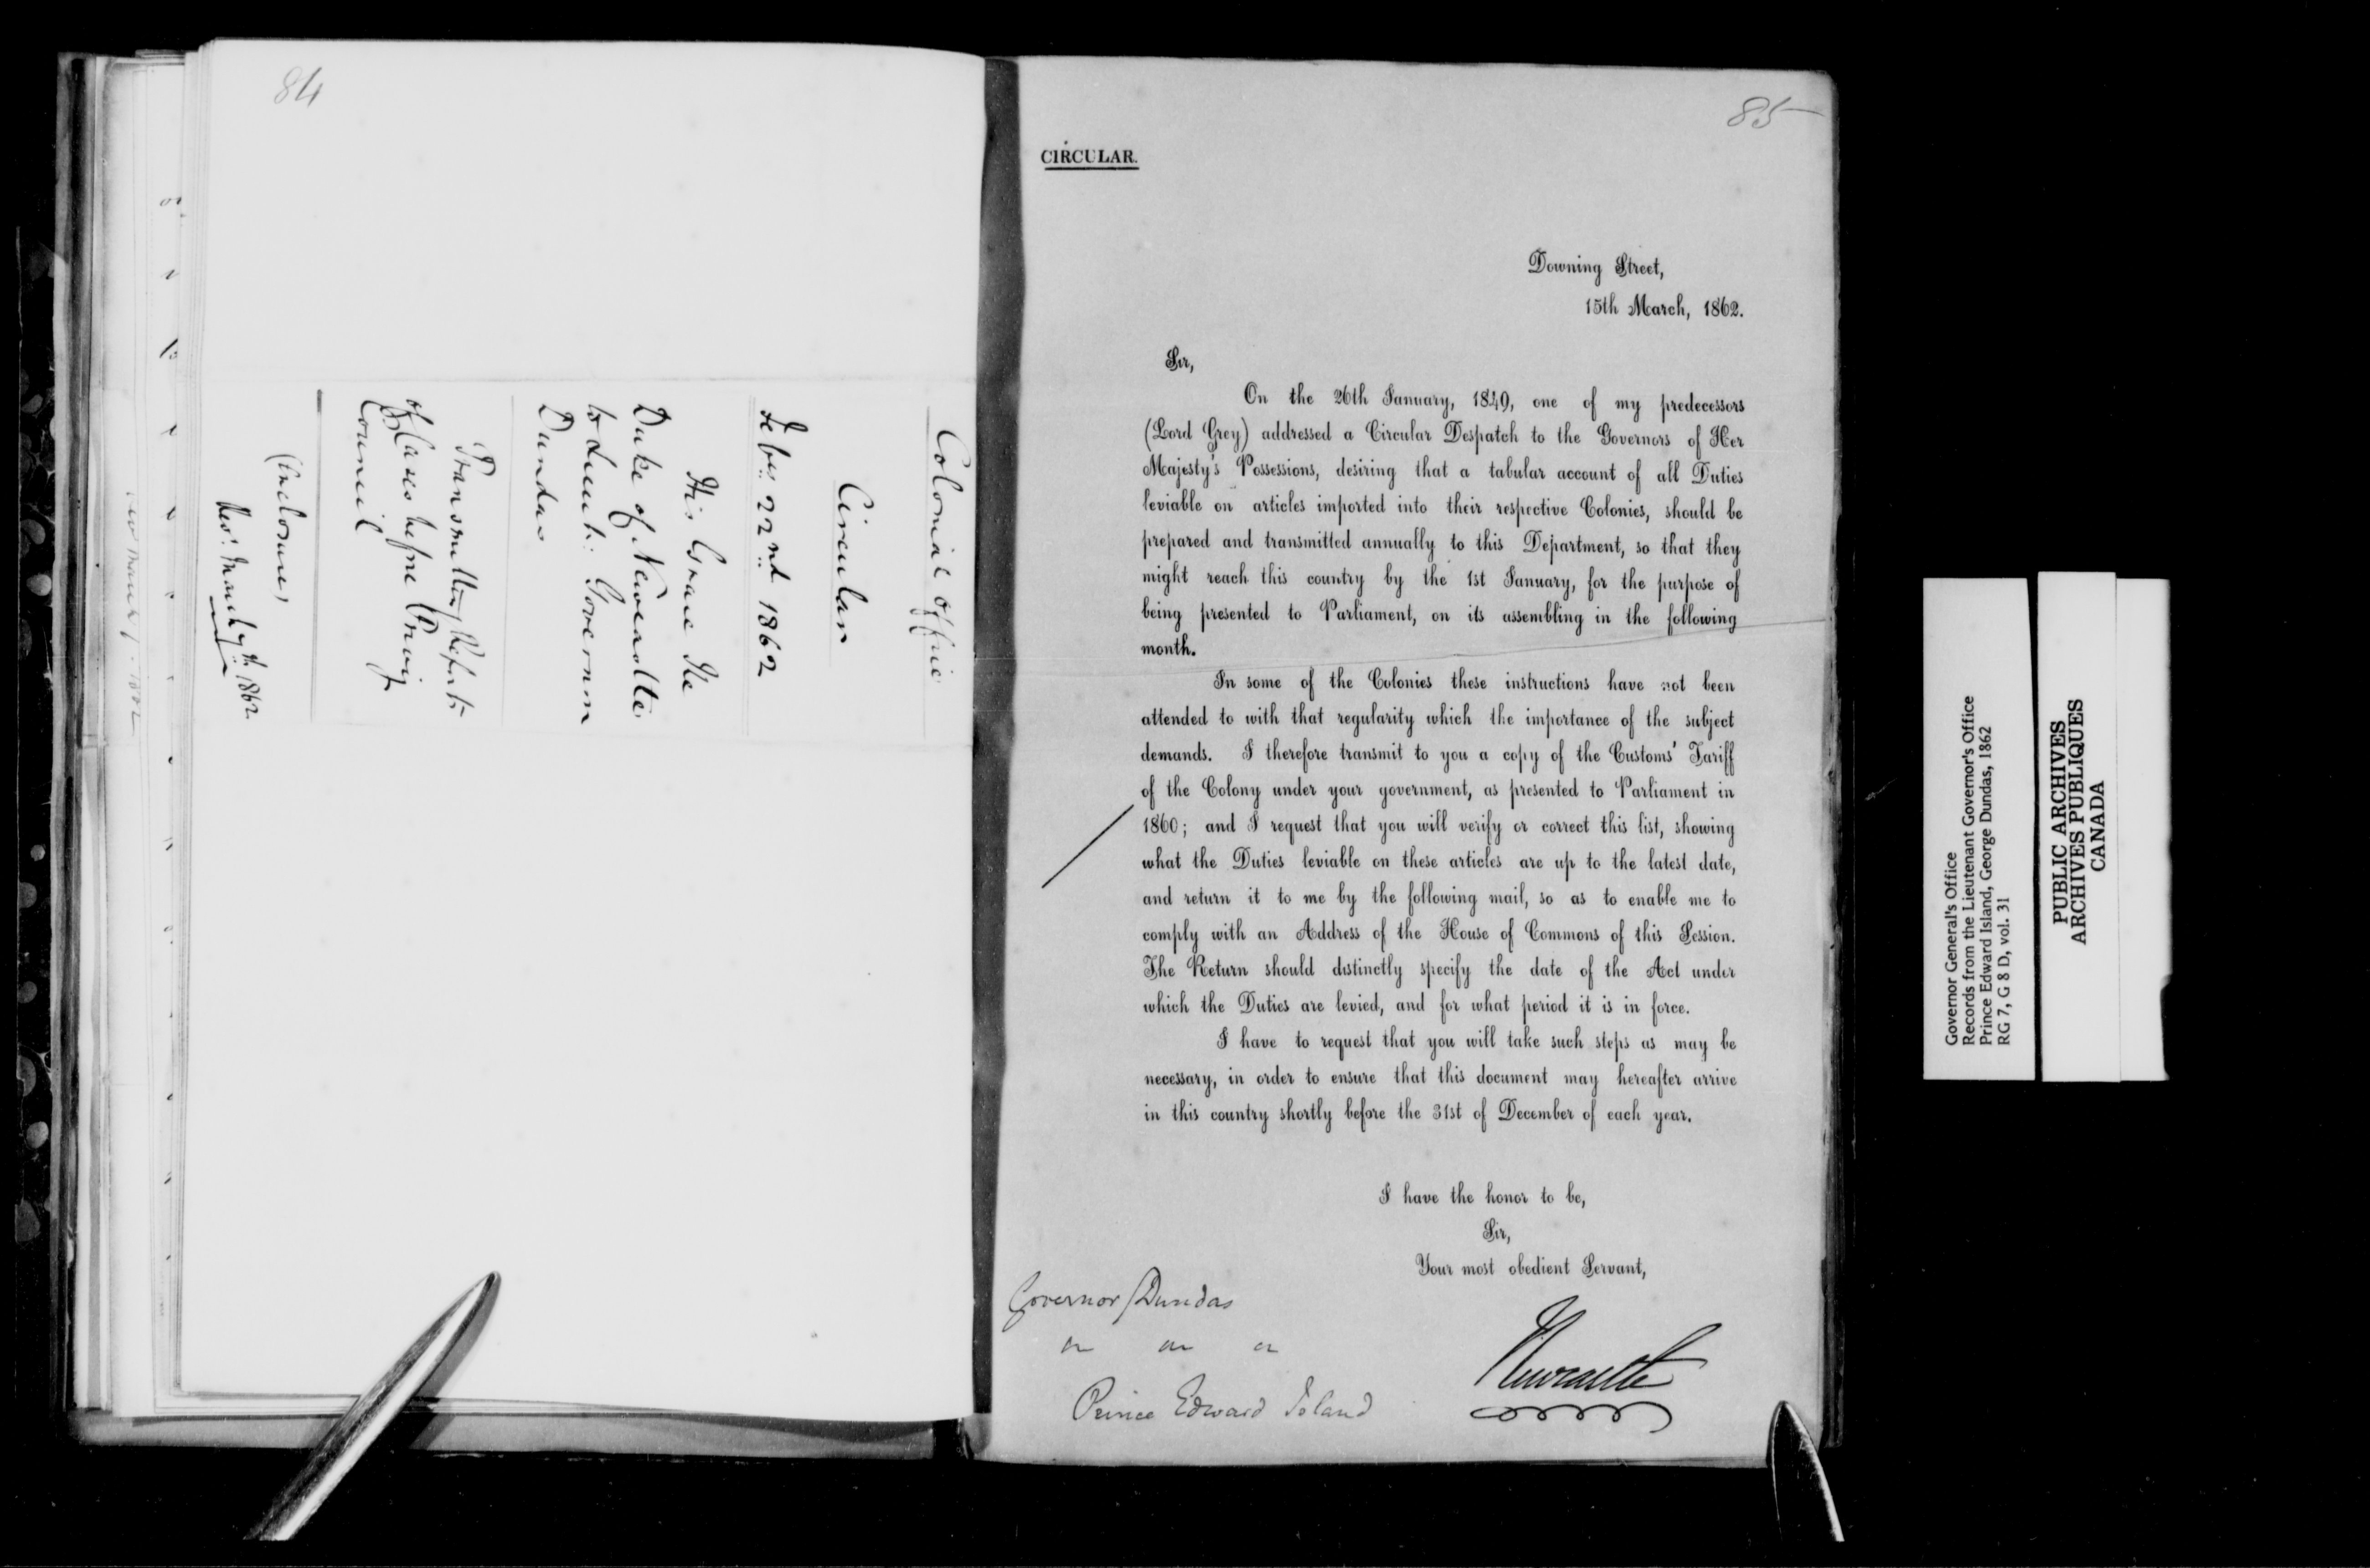 84
Colonial Office
Circular
Feby. 22nd 1862
His Grace the
Duke of Newcastle
to Lieut: Governor
Dundas
Transmitting Reports
of Cases before Privy
Council
(Enclosures)
Recd. March 7th 1862
85
CIRCULAR.
Downing Street,
15th March, 1862.
Sir,
On the 26th January, 1849, one of my predecessors
(Lord Grey) addressed a Circular Despatch to the Governors of Her
Majesty's Possessions, desiring that a tabular account of all Duties
leviable on articles imported into their respective Colonies, should be
prepared and transmitted annually to this Department, so that they
might reach this country by the 1st January, for the purpose of
being presented to Parliament, on its assembling in the following
month.
In some of the Colonies these instructions have not been
attended to with that regularity which the importance of the subject
demands. I therefore transmit to you a copy of the Customs' Tariff
of the Colony under your government, as presented to Parliament in
1860; and I request that you will verify or correct this list, showing
what the Duties leviable on these articles are up to the latest date,
and return it to me by the following mail, so as to enable me to
comply with an Address of the House of Commons of this Session.
The Return should distinctly specify the date of the Act under
which the Duties are levied, and for what period it is in force.
I have to request that you will take such steps as may be
necessary, in order to ensure that this document may hereafter arrive
in this country shortly before the 31st of December of each year.
I have the honor to be,
Sir,
Your most obedient Servant,
Newcastle
Governor Dundas
Prince Edward Island
Governor General's Office
Records from the Lieutenant Governor's Office
Prince Edward Island, George Dundas, 1862
RG 7, G 8 D, vol. 31
PUBLIC ARCHIVES
ARCHIVES PUBLIQUES
CANADA